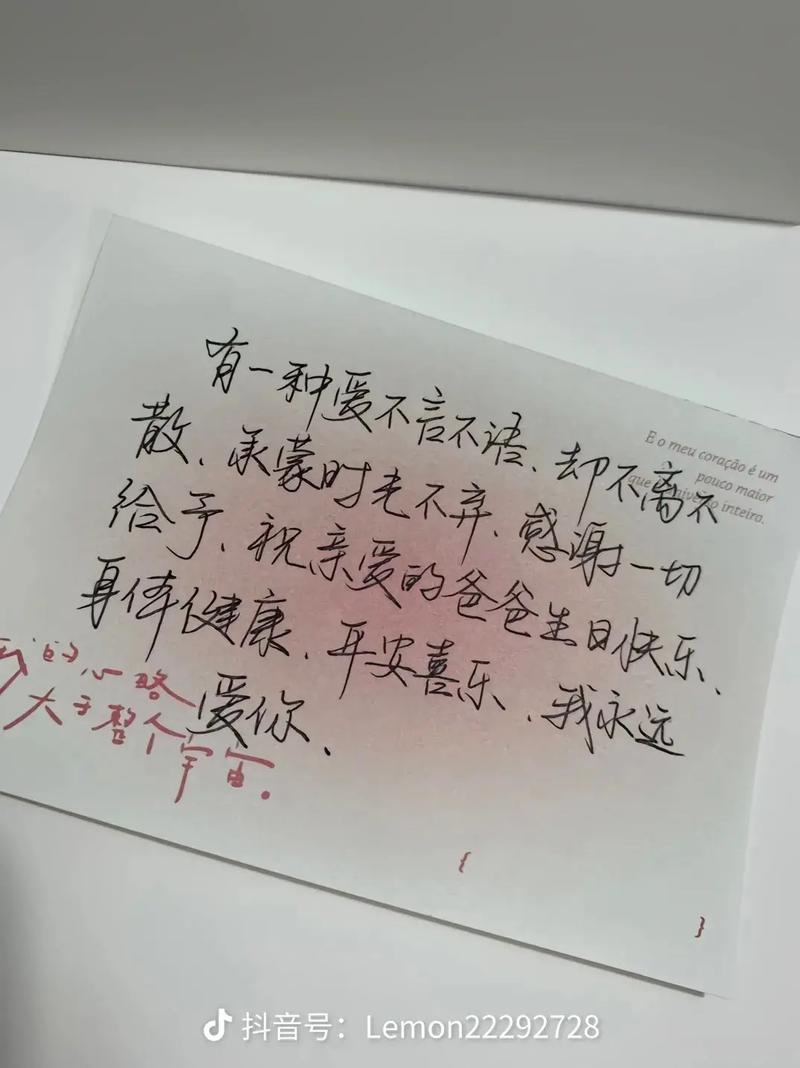 有一种爱不言不语、却不离不
散、承蒙时光不弃、感谢一切
给予、祝亲爱的爸爸生日快乐、
身体健康、平安喜乐、我永远
爱你、
E o meu coração é um
pouco maior
que inteiro.
我的心略
大于整个宇宙。
{
}
抖音号：Lemon22292728